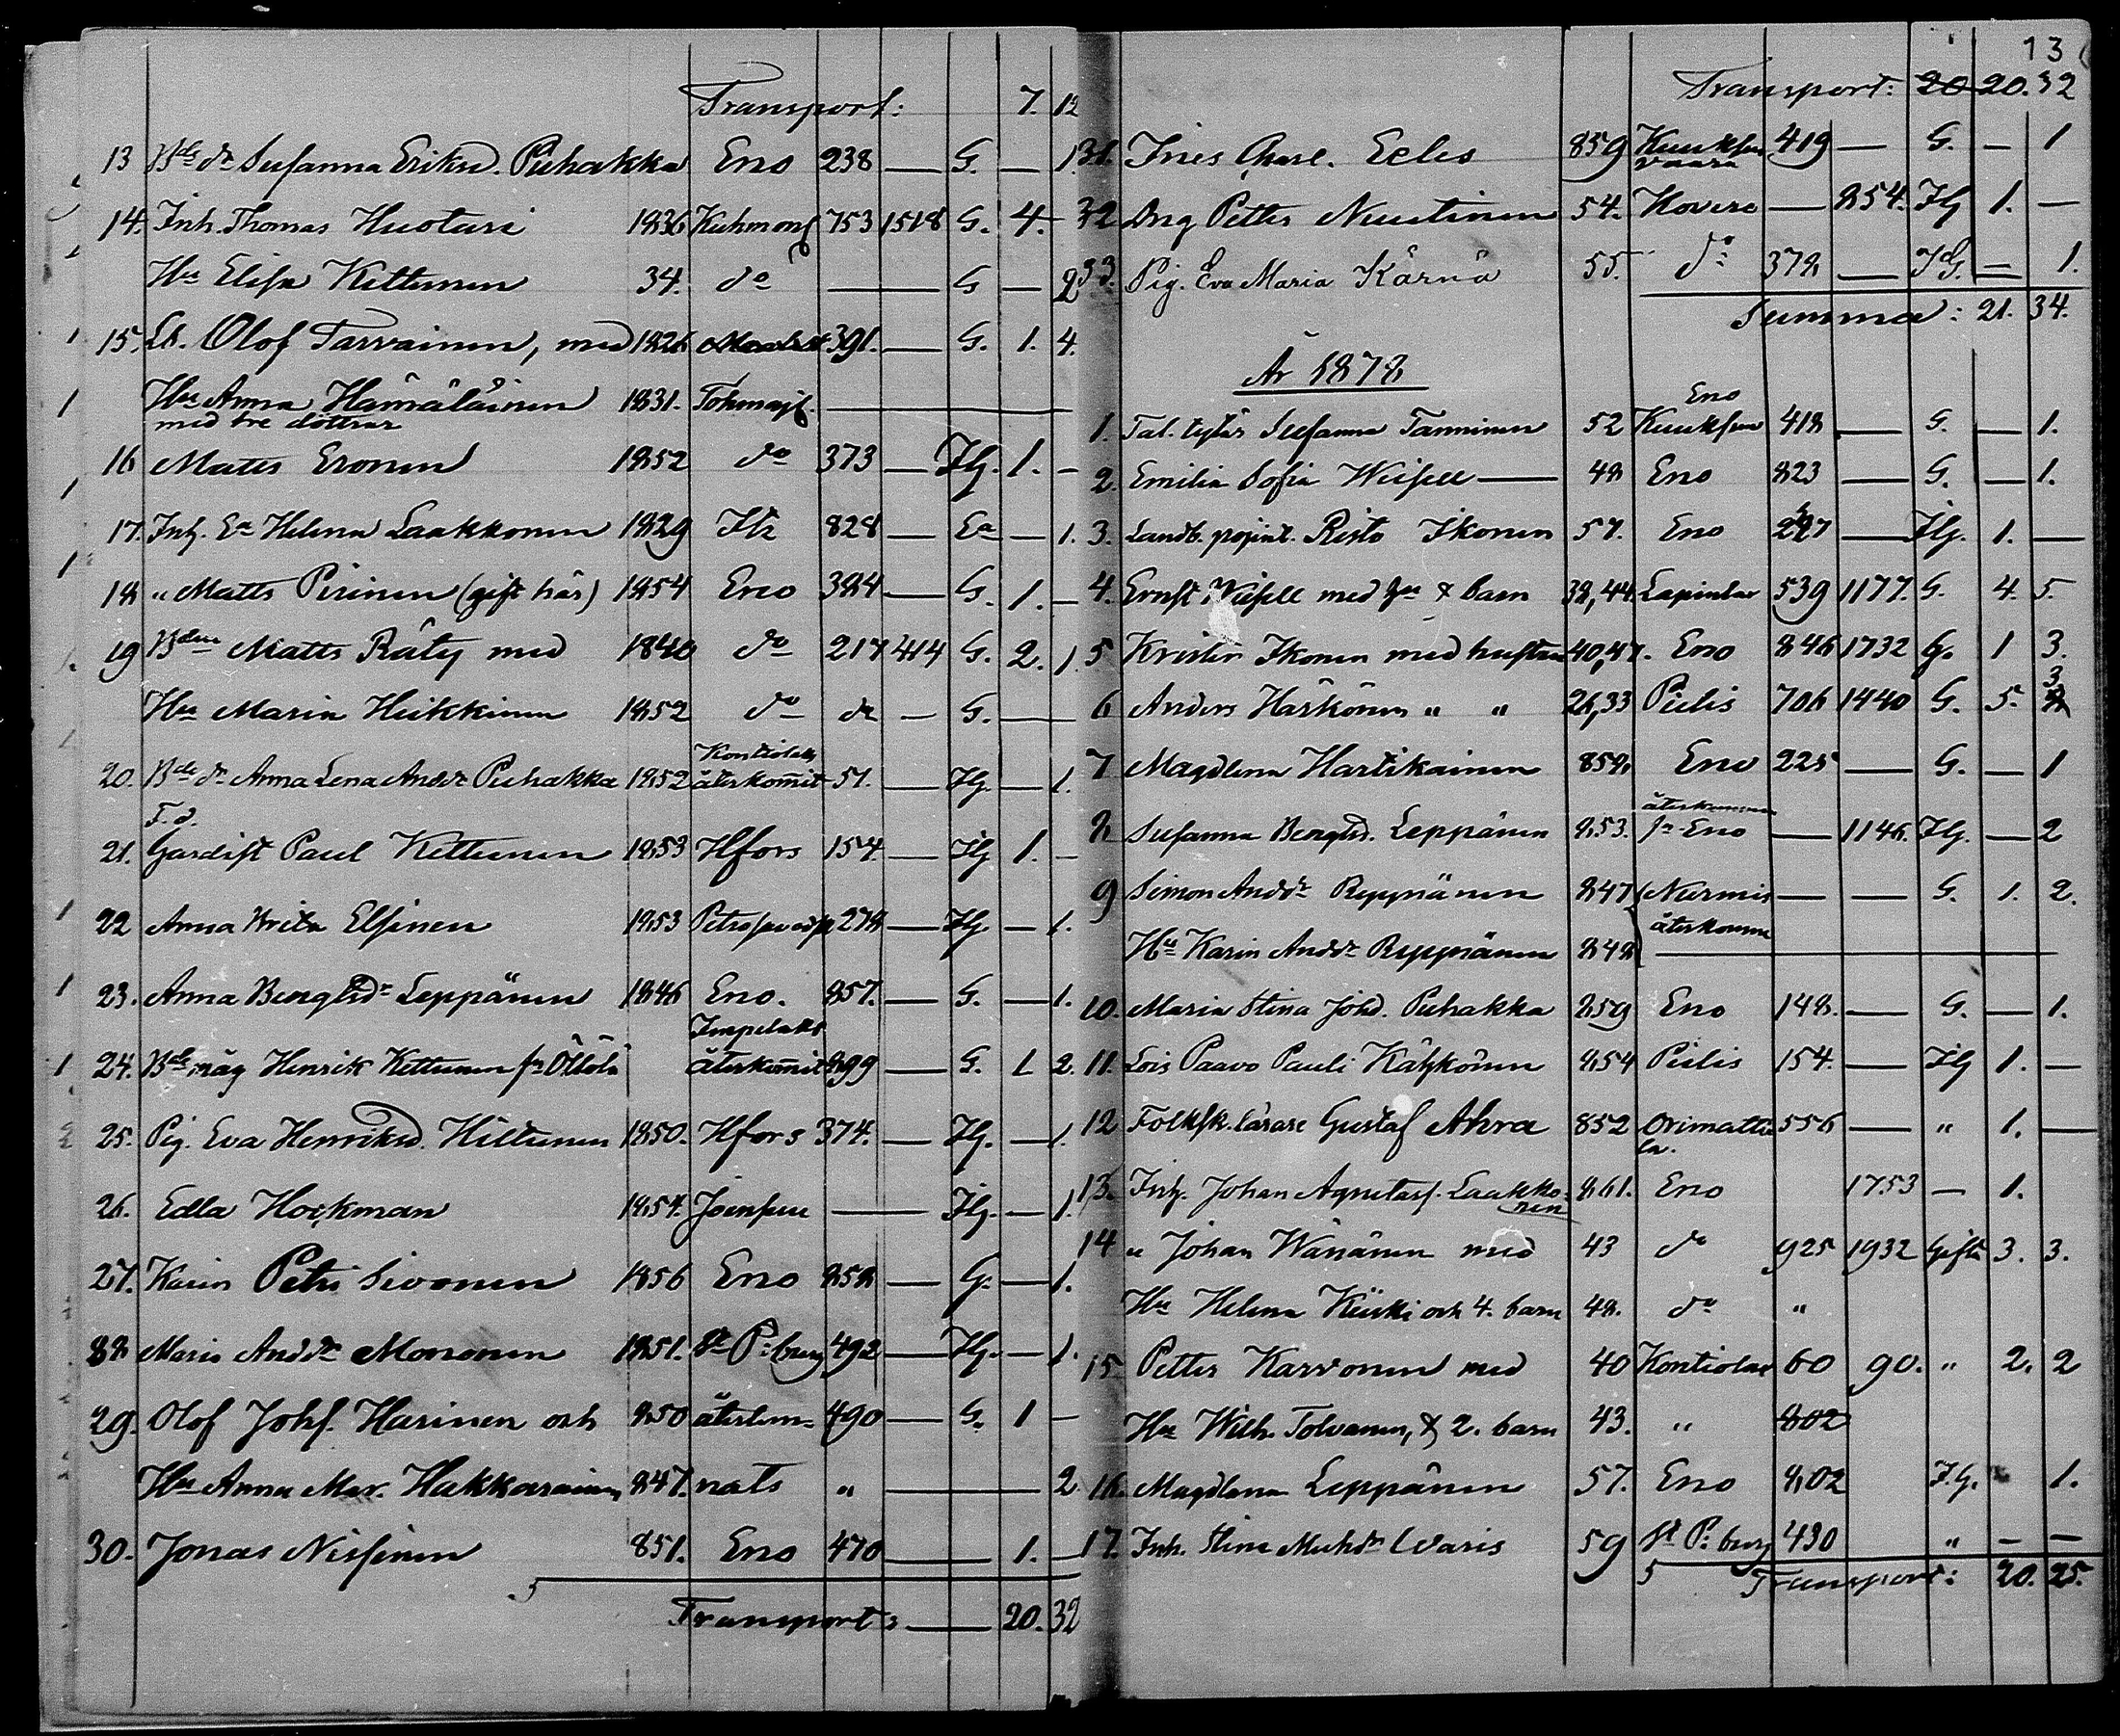 Transport: 7. 12
13 Bde dr Susanna Eriksd. Puhakka Eno 238 — G. — 1.
14. Inh. Thomas Huotari 1836 Kuhmons 753 1518 G. 4. —
Hu Elisa Kettunen 34. do — G — 2
15. Lb. Olof Tarvainen, med 1826 391. — G. 1. 4.
Hu Anna Hämäläinen 1831. Tohmaj. —
med tre döttrar
16 Matts Eronen 1852 do 373 — Ilg. 1. —
17. Inh. Ea Helena Laakkonen 1829 Itz 828 — Ea — 1.
18 „ Matts Pirinen (gift här) 1854 Eno 384 — G. 1. —
19 Bden Matts Räty med 1840 do 217 414 G. 2. 1.
Hu Maria Heikkinen 1852 do do — G. —
Kontiolaks
20. Bde dr Anna Lena Andsdr Puhakka 1852 återkommit 51. — Ilg. — 1.
F. d.
21. Gardist Paul Kettunen 1853 Hfors 154. — Ilg 1. —
22 Anna Brita Elsinen 1853 274 — Ilg. — 1.
23. Anna Bengtsdr Leppänen 1846 Eno. 857. — G. — 1.
Impilaks
24. Bde måg Henrik Kettunen fr Öllölä återkommit 899 — G. 1 2.
25. Pig. Eva Henriksd. Hiltunen 1850. Hfors 374. — Ilg. — 1.
26. Edla Hockman 1854. Joensuu — Ilg. — 1.
27. Karin Petri Sivonen 1856 Eno 858 — G. — 1.
28 Maria Andsdr Mononen 1851. St P:burg 492 — Ilg. — 1.
29. Olof Johs. Harinen och 850 återkom- 490 — G. 1 —
Hu Anna Mar. Hakkarainen 847. nats „ — 2
30. Jonas Nissinen 851. Eno 470 — 1. —
Transport: — 20. 32
13
Transport: 20 20. 32
31. Ines Charl. Ecles 859 Kuuksen vaara 419 — G. — 1
32 Drg Petter Nuutinen 54. Kovero — 854. Ilg 1. —
33. Pig. Eva Maria Kärnä 55. do 378 — IG. — 1.
Summa: 21. 34.
År 1878
Eno
1. Tal. Susanna Tanninen 52 Kuuksen 418 — G. — 1.
2. Emilia Sofia Weisell — 48 Eno 823 — G. — 1.
3. Landb. Risto Ikonen 57. Eno 227 — Ilg. 1. —
4. Ernst Weisell med hu & barn 38,44. Lapinlax 539 1177. G. 4. 5.
5 Krister Ikonen med hustru 40,47. Eno 846 1732 G. 1 3.
6 Anders Härkönen „ „ 26,33 Pielis 706 1440 G. 5. 3
7 Magdlena Hartikainen 858. Eno 225 — G. — 1
återkommen
8 Susanna Bengtsd. Leppänen 853. fr Eno — 1146. Ilg. — 2
9 Simon Andsdr Reppänen 847 Nurmis — — G. 1. 2.
återkomne
Hu Karin Andsdr Reppänen 848 —
10. Maria Stina Johd. Puhakka 859 Eno 148. — G. — 1.
11. Lois Paavo Pauli Kähkönen 854 Pielis 154. — Ilg 1. —
12 Folksk.lärare Gustaf Ahra 852 Orimattila. 556 — „ 1. —
13. Inh. Johan Agnetas. Laakkonen 861. Eno 1753 — 1.
14 „ Johan Wänänen med 43 do 925 1932 Gifta 3. 3.
Hu Helena Kiiski och 4. barn 48. do „
15 Petter Karvonen med 40 Kontiolax 60 90. „ 2. 2
Hu Wilh. Tolvanen, & 2. barn 43. „ 802
16. Magdlena Leppänen 57. Eno 802 I.g. 1.
17. Inh. Stina Michsdr Waris 59 St P:burg 430 „ — —
Transport: 20. 25.